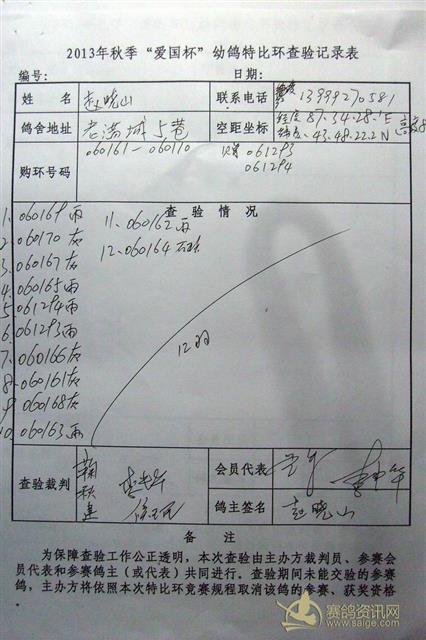 2013年秋季“爱国杯”幼鸽特比环查验记录表
编号： 日期：
姓名 赵晓山 联系电话 13999270581
鸽舍地址 老满城5巷 空距坐标 经度87.34-28.1E
43.48.22.2N
购环号码 060161—060170 061293
061294
查验情况
1、060169雨
2、060170灰
3、060167灰
4、060165雨
5、061294雨
6、061293雨
7、060166灰
8、060161灰
9、060168灰
10、060163雨
11、060162雨
12、060164
12羽
查验裁判 会员代表
鸽主签名 赵晓山
备注
为保障查验工作公正透明，本次查验由主办方裁判员、参赛会
员代表和参赛鸽主（或代表）共同进行。查验期间未能交验的参赛
鸽，主办方将依照本次特比环竞赛规程取消该鸽的参赛、获奖资格
赛鸽资讯网
www.saige.com